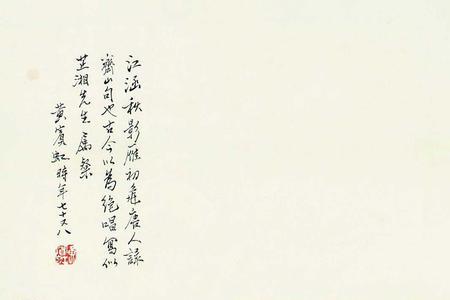 江涵秋影雁初飛唐人詠
齊山句也古今以為絕唱寫似
芷湘先生屬粲
黃賓虹時年七十又八